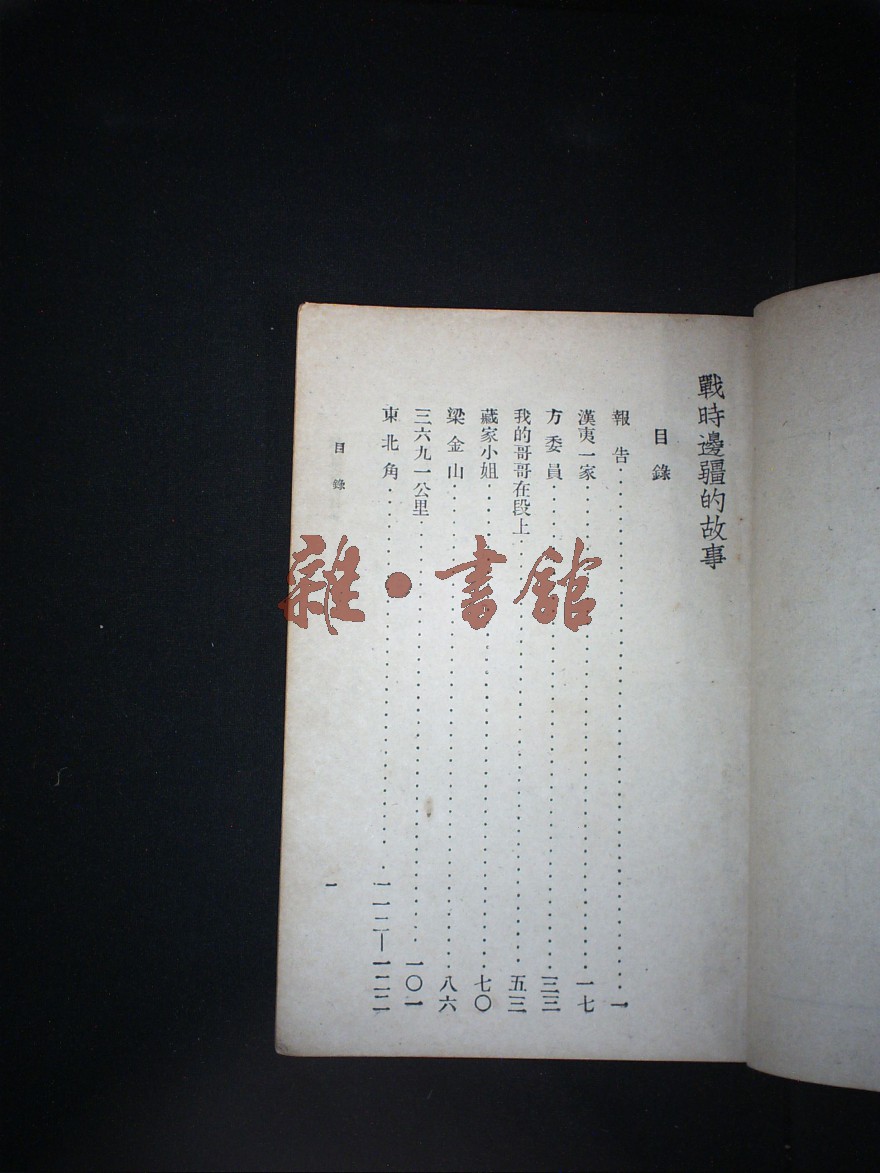 戰時邊疆的故事
目錄
報告 一
漢夷一家 一七
方委員 三三
我的哥哥在段上 五三
藏家小姐 七〇
梁金山 八六
三六九一公里 一〇一
東北角 一一二—一二二
目錄
一
雜·書館